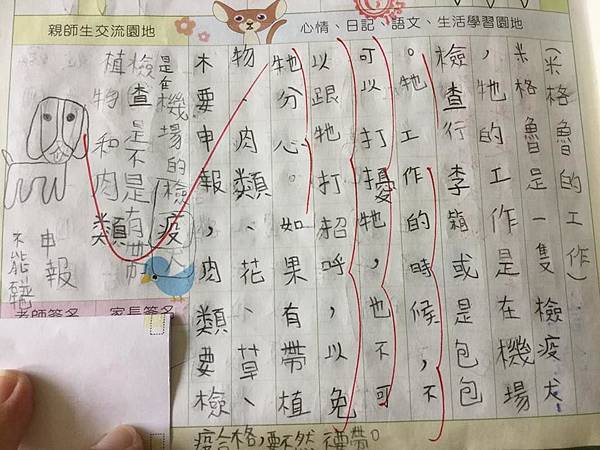 親師生交流園地
心情、日記、語文、生活學習園地
(米格魯的工作)
米格魯是一隻檢疫犬
，牠的工作是在機場
檢查行李箱或是包包
。牠工作的時候，不
可以打擾牠，也不可
以跟牠打招呼，以免
牠分心。如果有帶植
物、肉類、花、草、
不要申報，肉類要檢
疫合格，要不然 要帶。
是隻機場的檢疫犬
檢查是不是有
植物和肉類
申報
不能碰
老師簽名
家長簽名